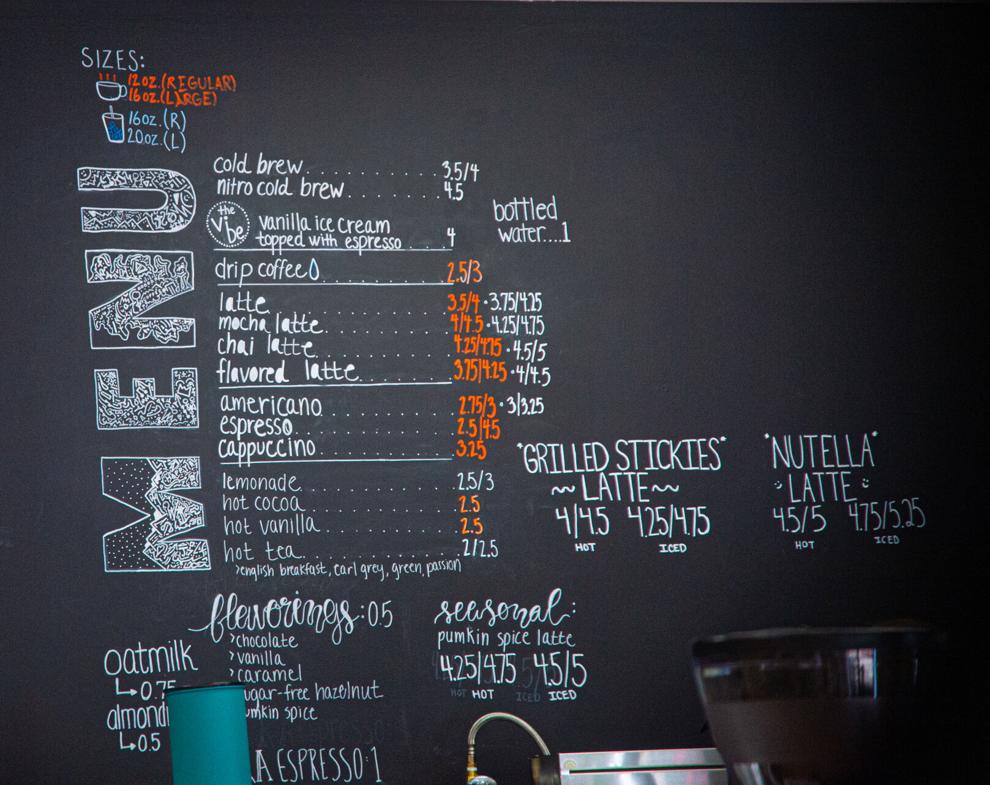 SIZES:
12oz.(REGULAR)
16oz.(LARGE)
16oz.(R)
20oz.(L)
MENU
cold brew.......... 3.5/4
nitro cold brew....... 4.5
the Vibe
vanilla ice cream
topped with espresso....4
bottled
water....1
drip coffee.......... 2.5/3
latte.......... 3.5/4 · 3.75/4.25
mocha latte.......... 4/4.5 · 4.25/4.75
chai latte.......... 4.25/4.75 · 4.5/5
flavored latte....... 3.75/4.25 · 4/4.5
americano.......... 2.75/3 · 3/3.25
espresso.......... 2.5/4.5
cappuccino.......... 3.25
lemonade.......... 2.5/3
hot cocoa.......... 2.5
hot vanilla.......... 2.5
hot tea.......... 2/2.5
>english breakfast, earl grey, green, passion
"GRILLED STICKIES"
~~ LATTE ~~
4/4.5 4.25/4.75
HOT ICED
"NUTELLA"
LATTE
4.5/5 4.75/5.25
HOT ICED
flavorings: 0.5
>chocolate
>vanilla
>caramel
ugar-free hazelnut
umkin spice
seasonal:
pumkin spice latte
4.25/4.75 4.5/5
HOT ICED
oatmilk
↳0.75
almond
↳0.5
A ESPRESSO:1